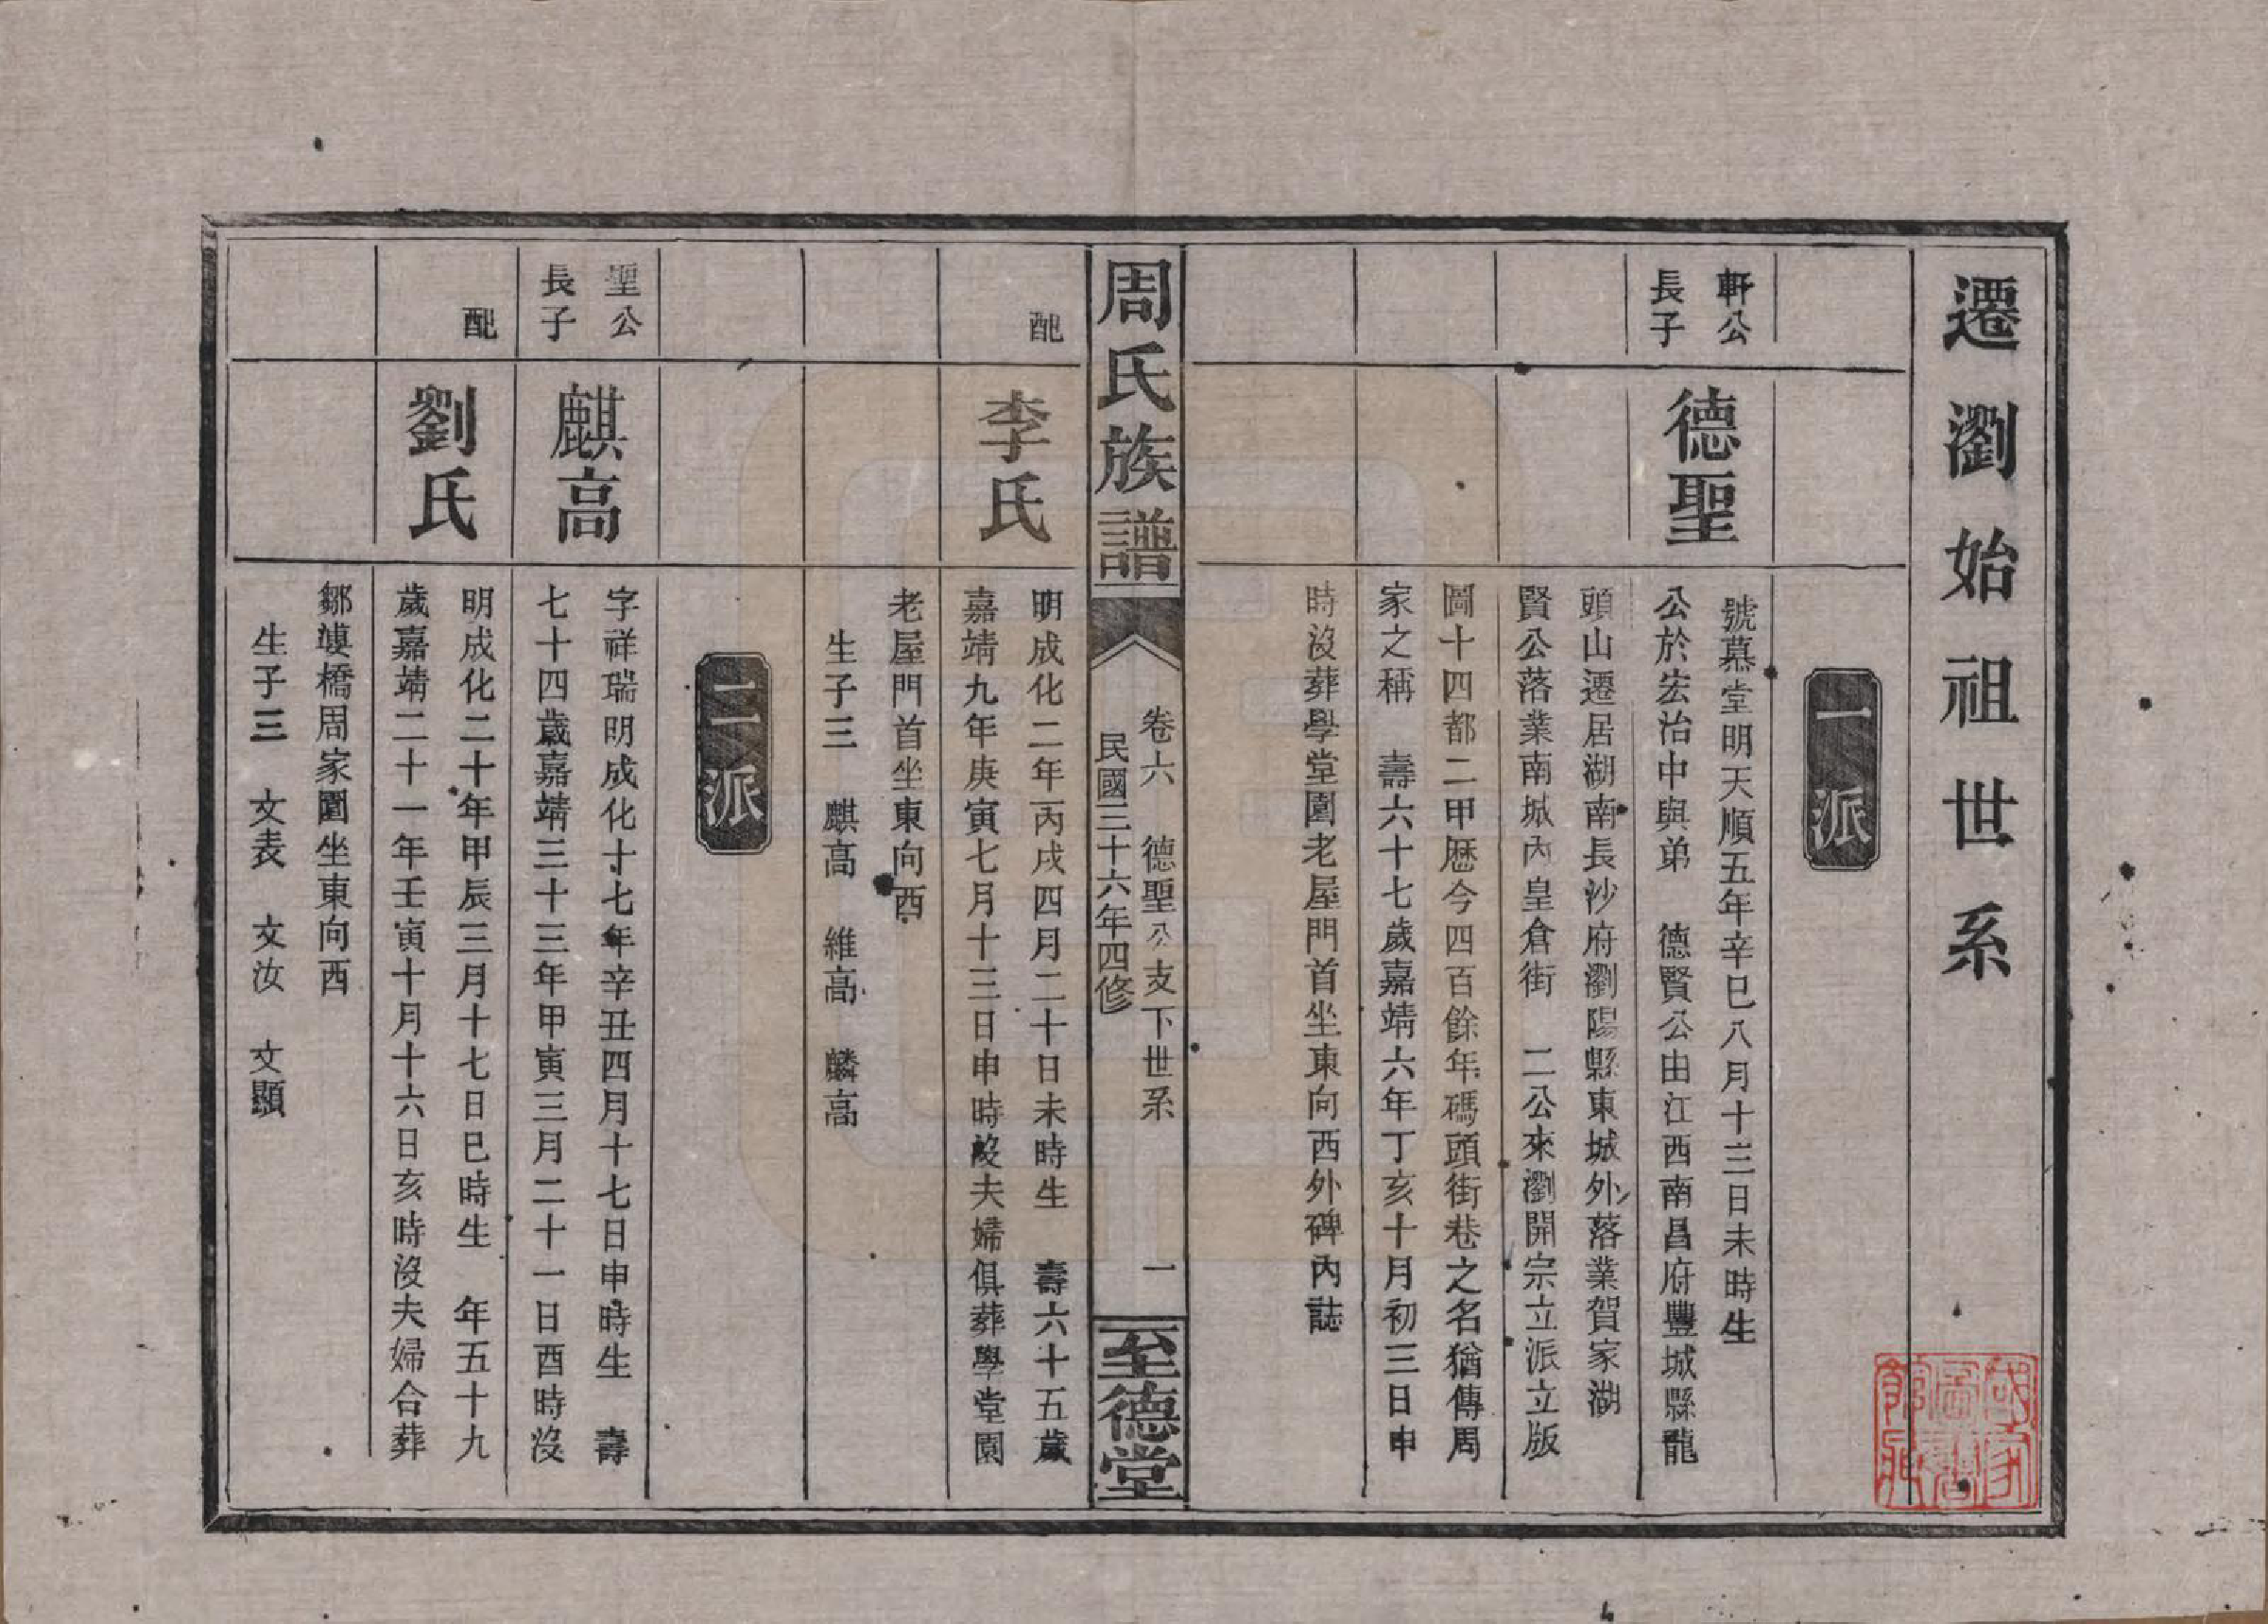 遷瀏始祖世系
一派
軒公
長子
德聖
號慕堂明天順五年辛巳八月十三日未時生
公於宏治中與弟　德賢公由江西南昌府豐城縣龍
頭山遷居湖南長沙府瀏陽縣東城外落業賀家湖
賢公落業南城內皇倉街　二公來瀏開宗立派立版
圖十四都二甲歷今四百餘年碼頭街巷之名猶傳周
家之稱　壽六十七歲嘉靖六年丁亥十月初三日申
時沒葬學堂園老屋門首坐東向西外碑內誌
周氏族譜
卷六　德聖公支下世系　一
民國三十六年四修
至德堂
配
李氏
明成化二年丙戌四月二十日未時生　壽六十五歲
嘉靖九年庚寅七月十三日申時沒夫婦俱葬學堂園
老屋門首坐東向西
生子三　麒高　維高　麟高
二派
聖公
長子
麒高
字祥瑞明成化十七年辛丑四月十七日申時生　壽
七十四歲嘉靖三十三年甲寅三月二十一日酉時沒
配
劉氏
明成化二十年甲辰三月十七日巳時生　年五十九
歲嘉靖二十一年壬寅十月十六日亥時沒夫婦合葬
鄒塽橋周家園坐東向西
生子三　文表　文汝　文顯